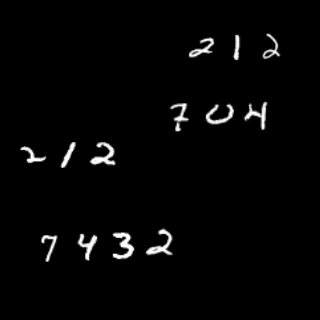 212
704
212
7432